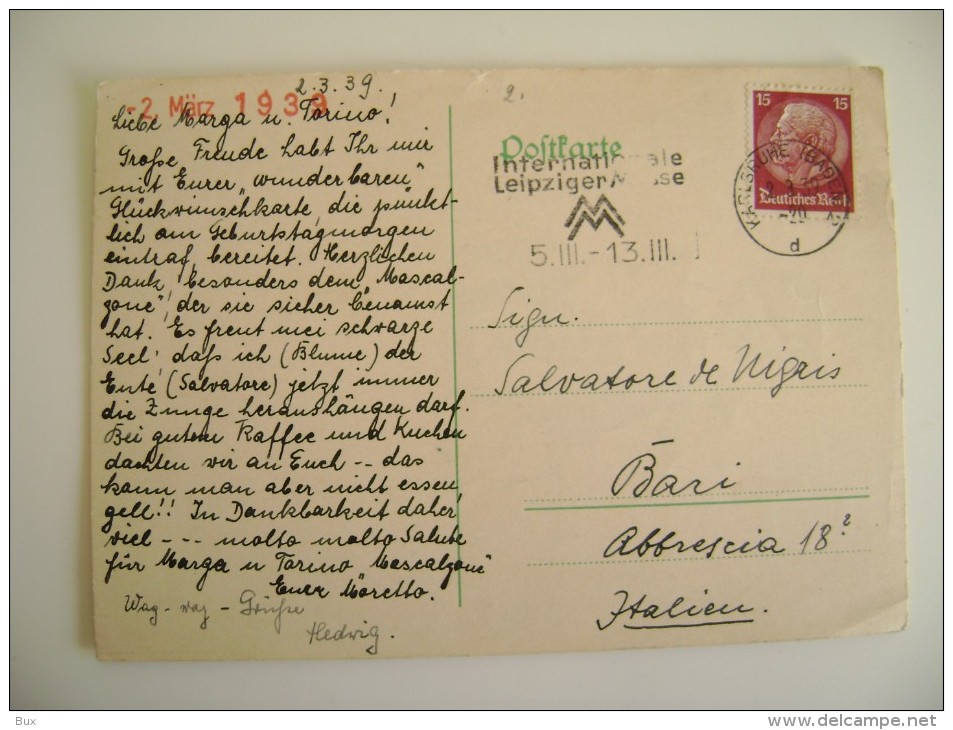 2.3.39.
-2. März 1939
Liebe Marga u. Torino!
Große Freude habt Ihr mir
mit Eurer „wunderbaren"
Glückwunschkarte, die pünkt-
lich am Geburtstagmorgen
eintraf, bereitet. Herzlichen
Dank, besonders dem „Mascal-
zone", der sie sicher benamst
hat. Es freut mei schwarze
Seel', daß ich (Blume) der
Ente (Salvatore) jetzt immer
die Zunge heraushängen darf.
Bei gutem Kaffee und Kuchen
dachten wir an Euch -- das
kann man aber nicht essen
gell!! In Dankbarkeit daher
viel --- molto molto Salute
für Marga u Torino Mascalzone
Euer Moretto.
Wag-wag-Grüße
Hedwig.
2.
Postkarte
Internationale
Leipziger Messe
MM
5.III.-13.III.
15 15
Deutsches Reich
KARLSRUHE (BADEN)
2.3.39
-20
d
Sign.
Salvatore de Nigris
Bari
Abbrescia 18²
Italien.
Bux
www.delcampe.net